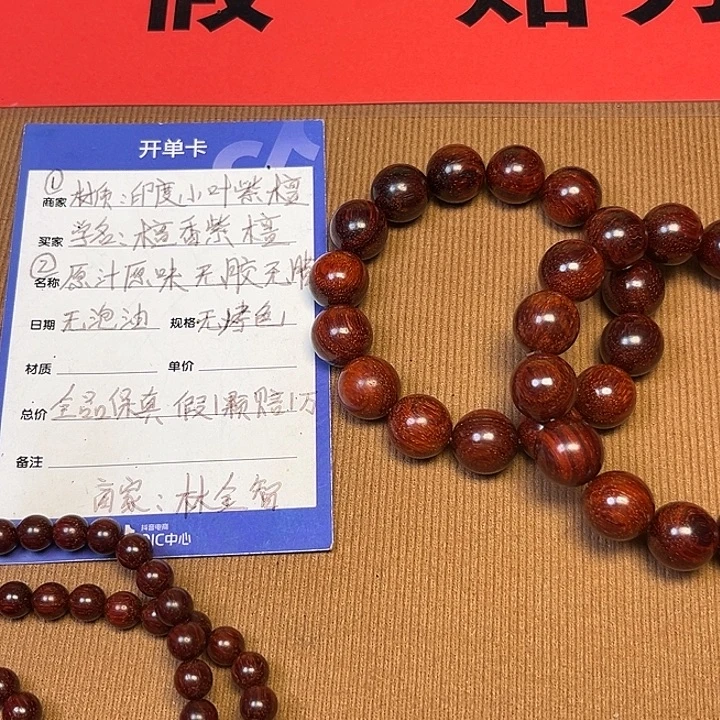 假一赔万
开单卡
① 商家 材质：印度小叶紫檀
买家 学名：檀香紫檀
② 名称 原汁原味 无胶无
日期 无泡油 规格 无烤色
材质 单价
总价 全品保真 假1颗赔1万
备注
商家：林全智
抖音电商
QIC中心